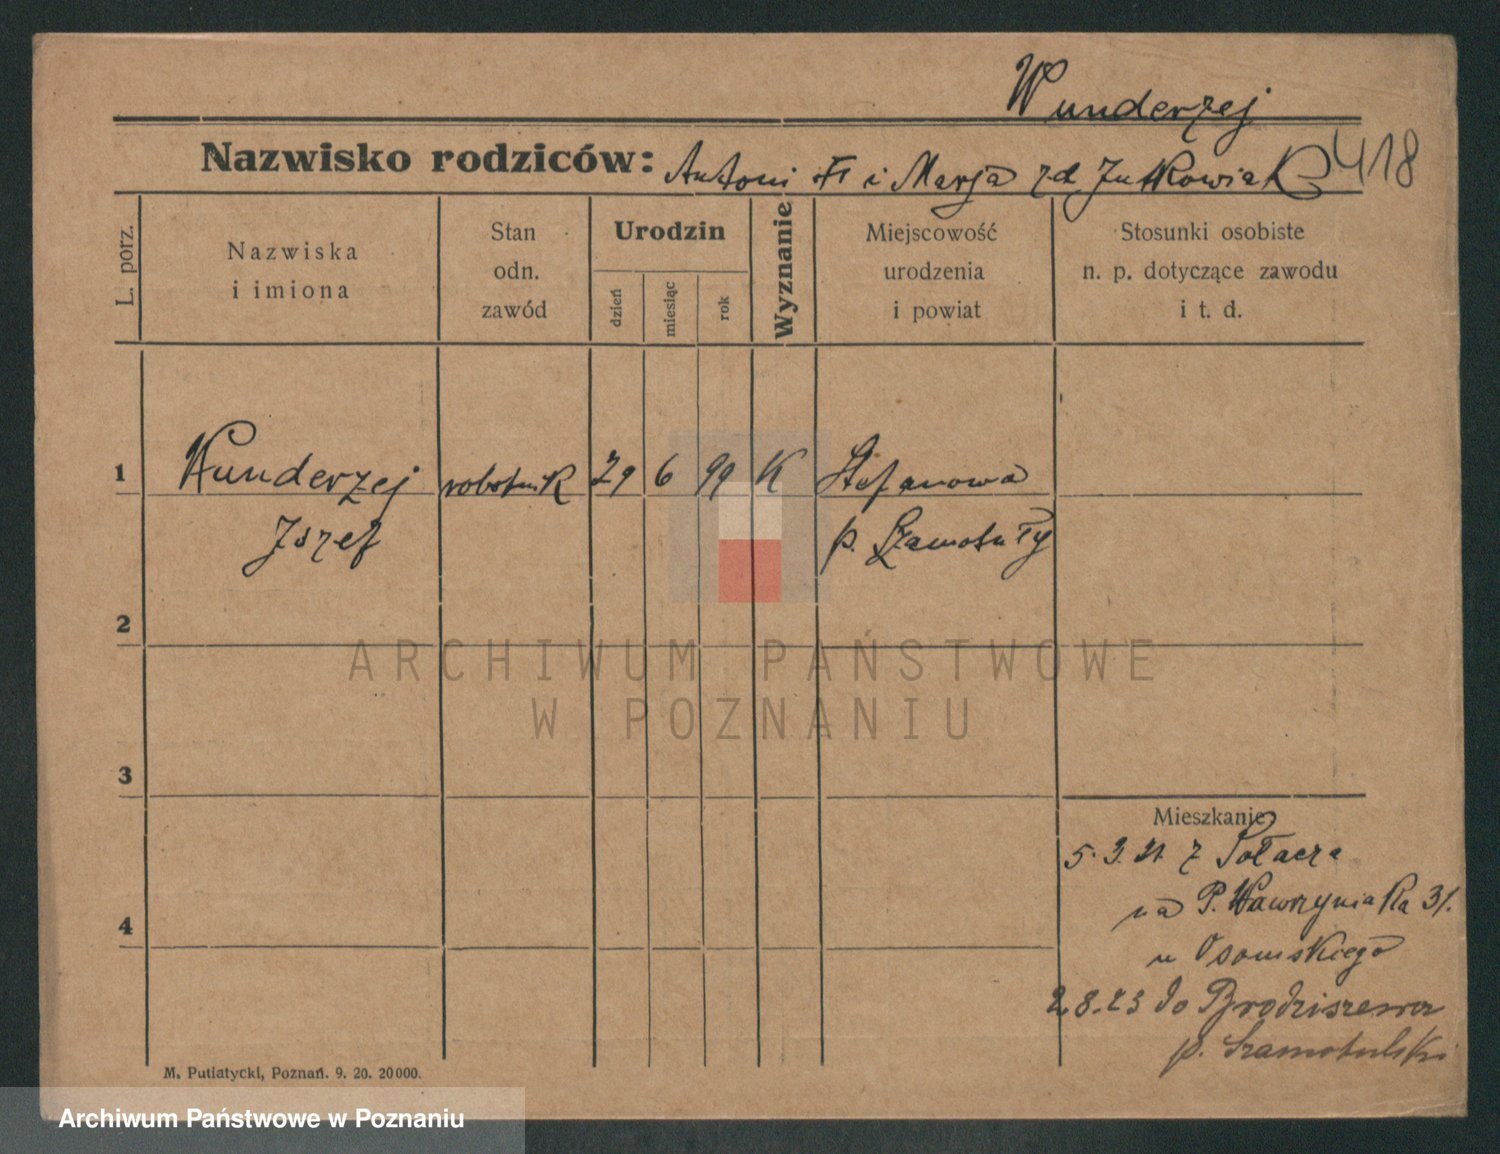 Wunderzej
Nazwisko rodziców: Antoni i Marja zd Jutkowiak 418
L. porz.
Nazwiska
i imiona
Stan
odn.
zawód
Urodzin
dzień
miesiąc
rok
Wyznanie
Miejscowość
urodzenia
i powiat
Stosunki osobiste
n. p. dotyczące zawodu
i t. d.
1 Wunderzej robotnik 29 6 99 K Stefanowo
Jszef p. Szamotuły
2
3
4
Mieszkanie
5.3.21 z Sołacza
na P. Wawrzyniaka 31.
u Osomskiego
2.8.23 do Brodziszewa
p. Szamotulski
M. Putiatycki, Poznań. 9. 20. 20000.
ARCHIWUM PAŃSTWOWE
W POZNANIU
Archiwum Państwowe w Poznaniu